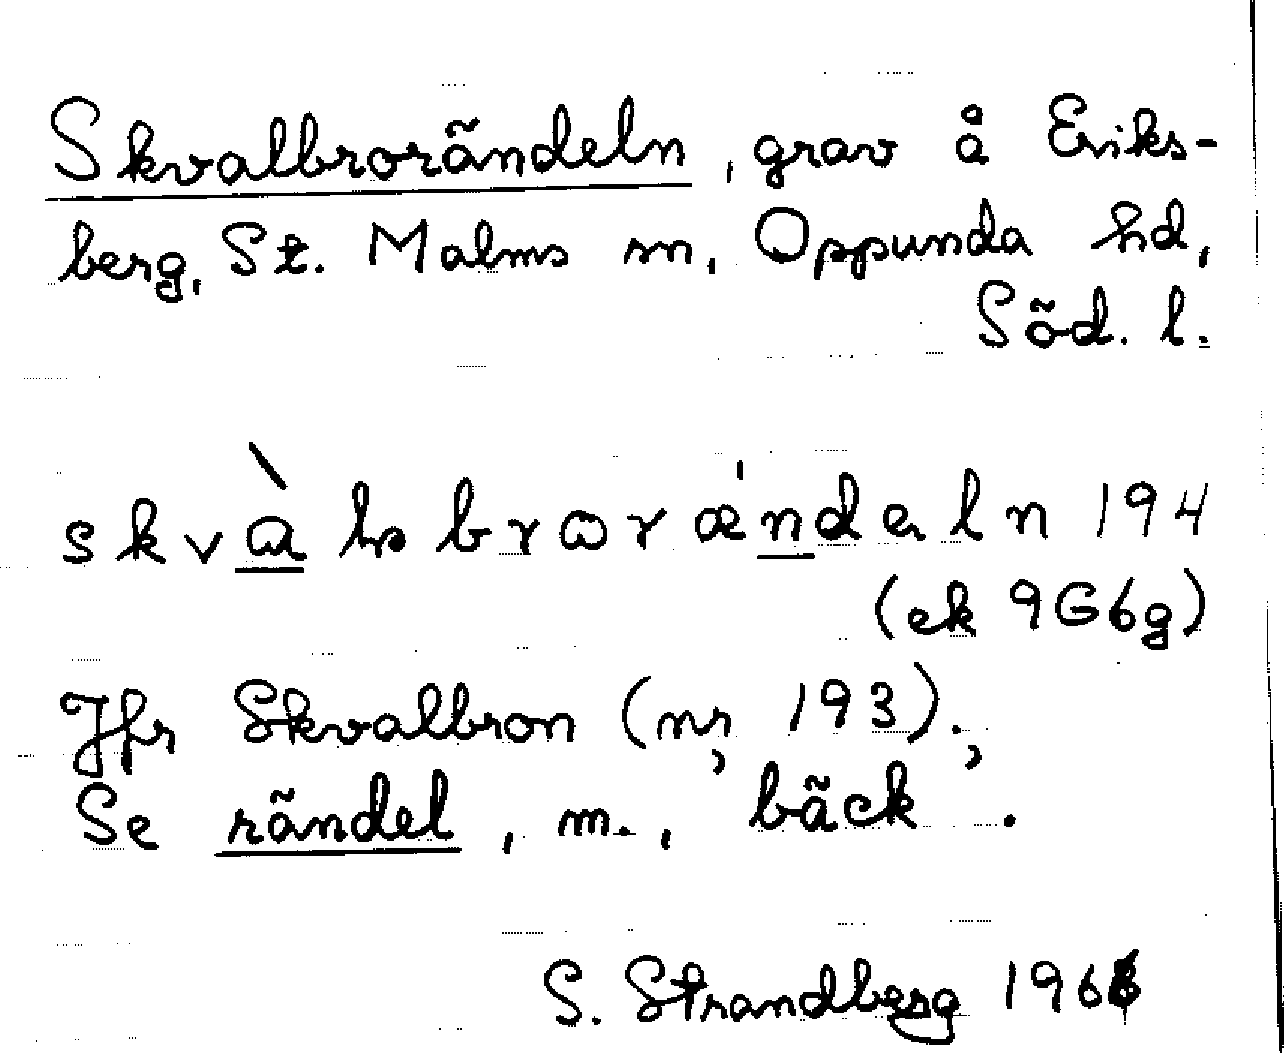 Skvalbrorändeln, grav å Eriks-
berg, St. Malms sn, Oppunda hd,
Söd. l.
194
(ek 9G6g)
Jfr Skvalbron (nr 193).
Se rändel, m., 'bäck'.
S. Strandberg 1966